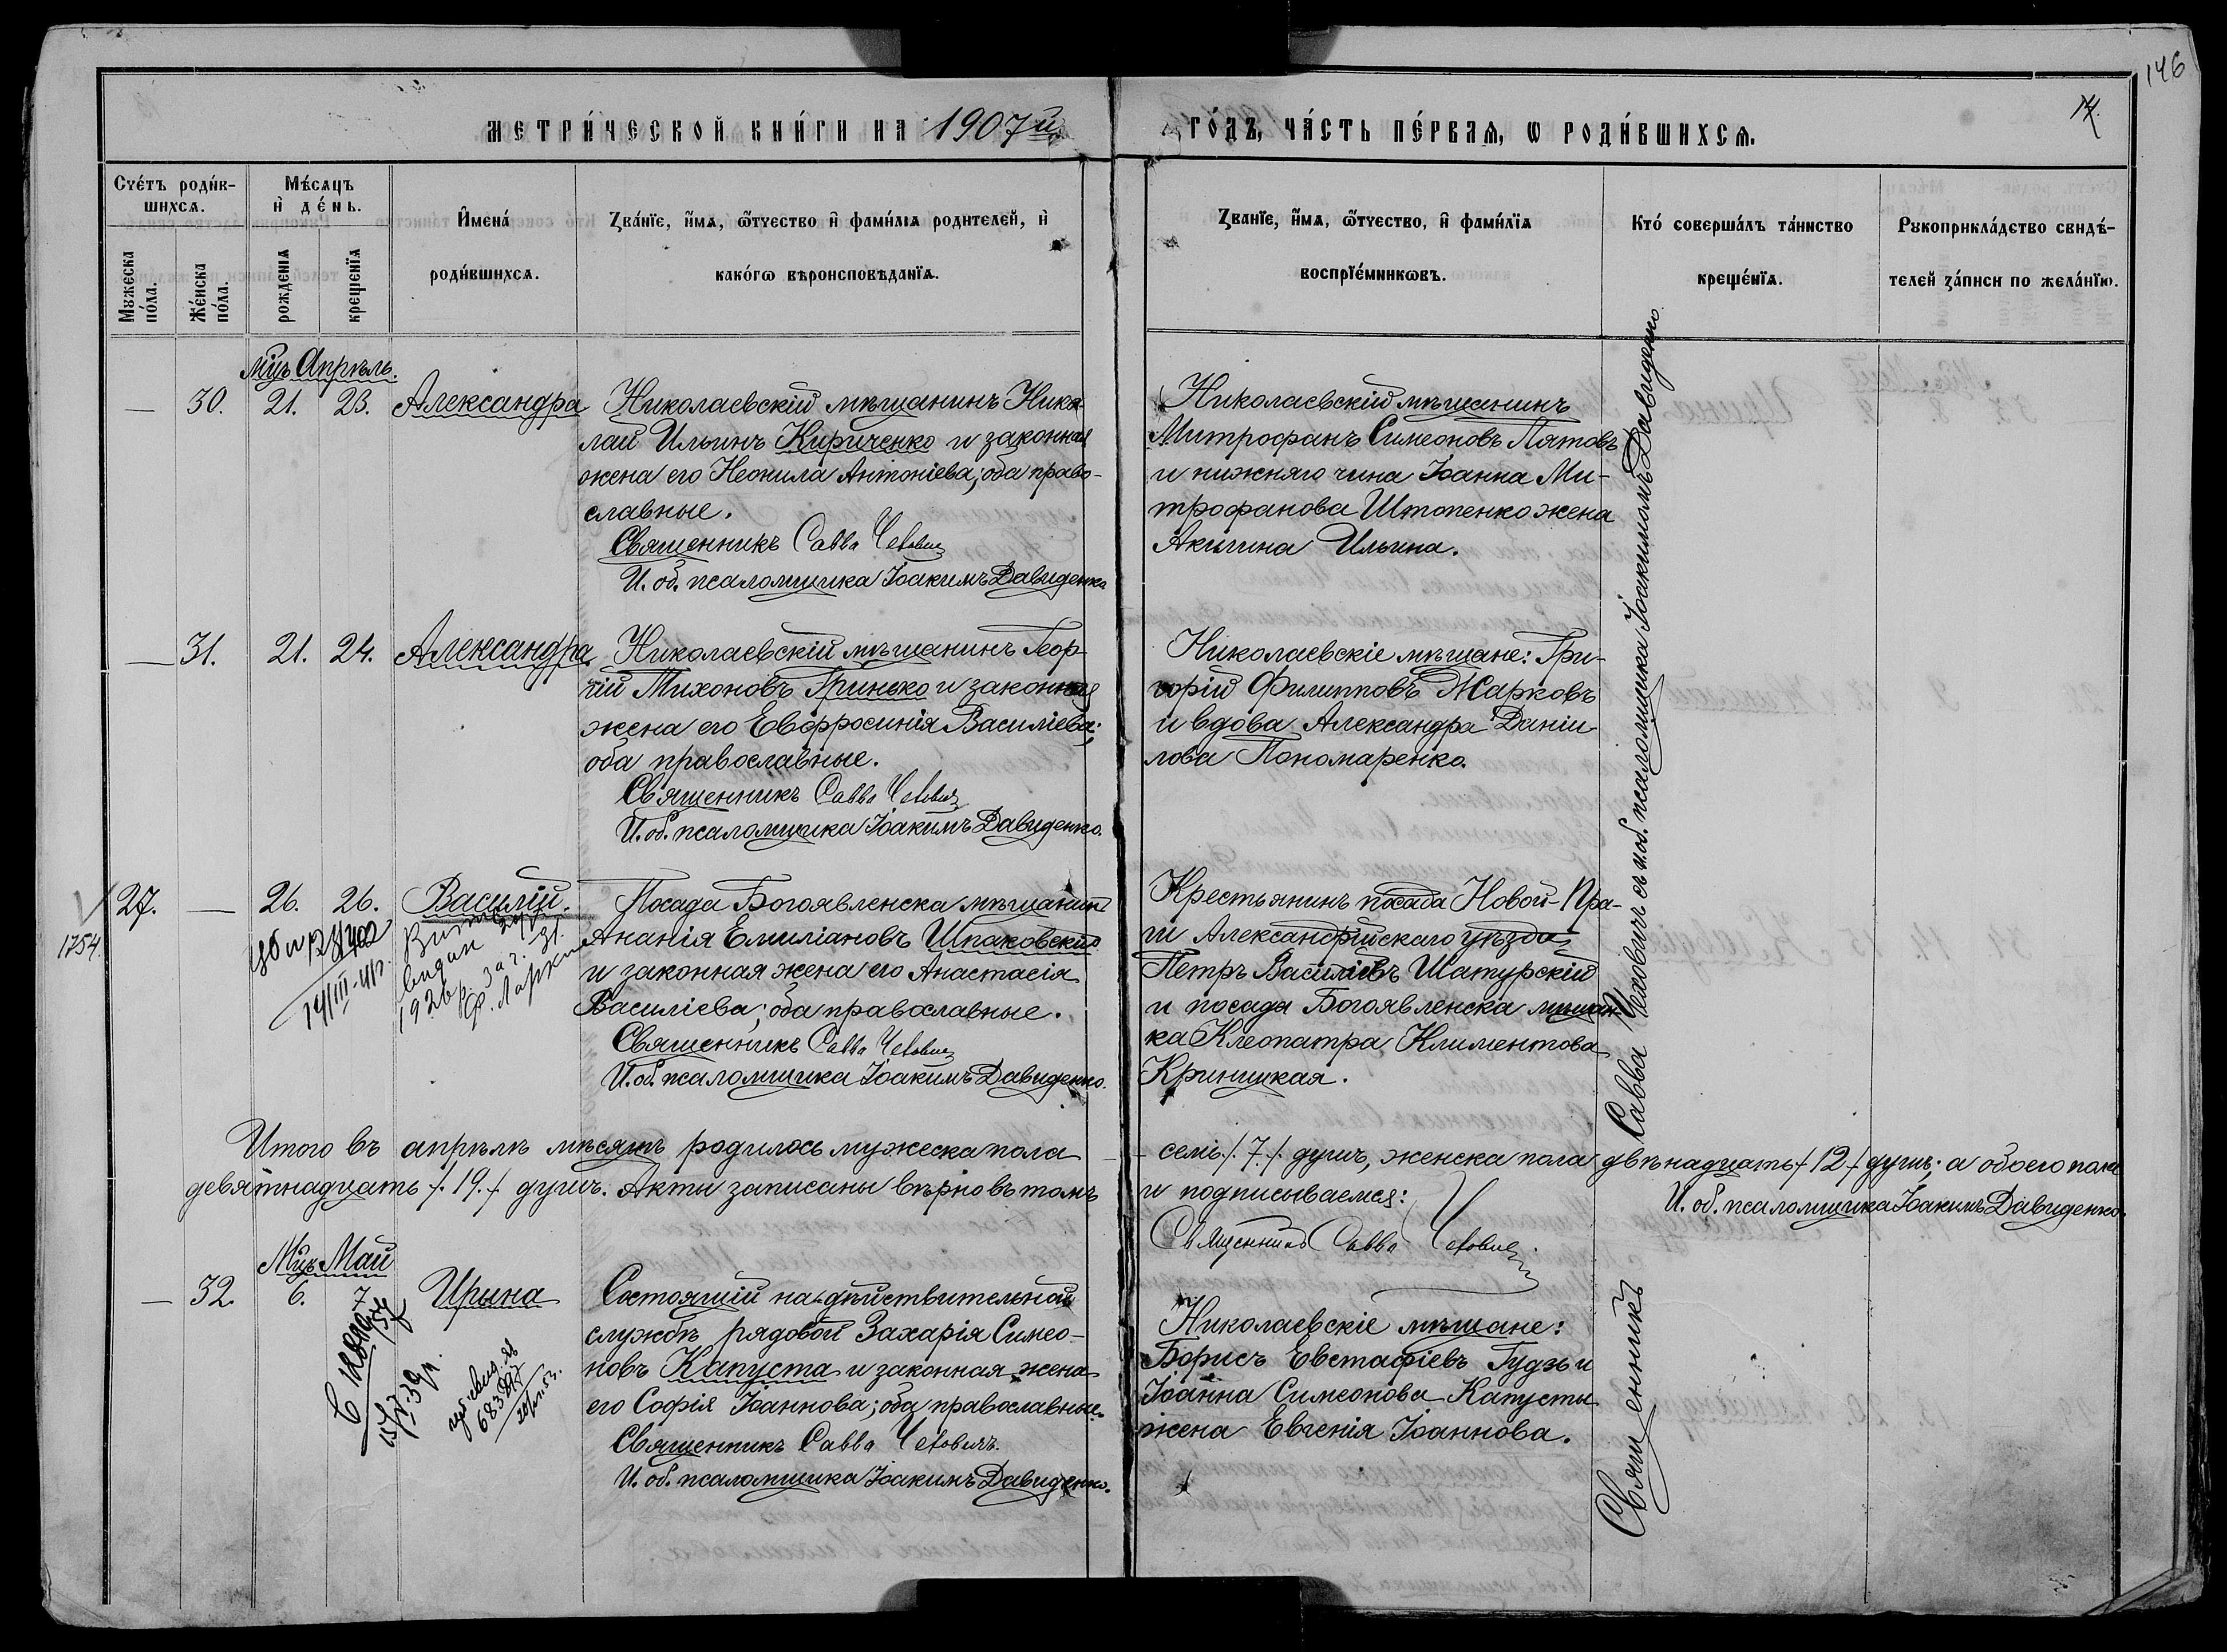 146
14.
МЕТРИ́ЧЕСКОЙ КНИ́ГИ НА 1907й
ГО́ДЪ, ЧА́СТЬ ПЕ́РВАѦ, Ѡ РОДИ́ВШИХСѦ.
Счéтъ роди́в-
шихсѧ.
Мужеска
по́ла.
Же́нска
по́ла.
Мѣ́сѧцъ
и҆ де́нь.
рождениѧ
крещениѧ
И҆мена́
роди́вшихсѧ.
Зва́нїе, и҆́мѧ, ѻ҆́тчество и҆ фами́лїѧ родителей, и҆
како́гѡ вѣроисповѣданїѧ.
Званїе, и҆́мѧ, ѻ҆́тчество, и҆ фами́лїѧ
воспрїе́мникѡвъ.
Кто́ соверша́лъ та́инство
креще́нїѧ.
Рукоприкла́дство свидѣ́-
телей за́писи по жела́нїю.
Мцъ Апрѣль.
— 30. 21. 23. Александра
Николаевскій мѣщанинъ Нико-
лай Ильинъ Кириченко и законная
жена его Неонила Антоніева; оба право-
славные.
Священникъ Савва Чехович
И. об. псаломщика Іоакимъ Давиденко
Николаевскій мѣщанинъ
Митрофанъ Симеоновъ Пятовъ
и нижняго чина Іоанна Ми-
трофанова Штопенко жена
Акилина Ильина.
— 31. 21. 24. Александра
Николаевскій мѣщанинъ Геор-
гій Тихоновъ Гринько и законная
жена его Евфросинія Василіева;
оба православные.
Священникъ Савва Чехович
И. об. псаломщика Іоакимъ Давиденко.
Николаевскіе мѣщане: Гри-
горій Филипповъ Марковъ
и вдова Александра Даніи-
лова Пономаренко.
1754.
27. — 26. 26. Василій.
Посада Богоявленска мѣщанинъ
Ананія Емиліановъ Шпаковскій
и законная жена его Анастасія
Василіева; оба православные.
Священникъ Савва Чехович
И. об. псаломщика Іоакимъ Давиденко.
Крестьянинъ посада Новой-Пра-
ги Александрійскаго уѣзда
Петръ Василіевъ Шатурскій
и посада Богоявленска мѣщан-
ка Клеопатра Климентова
Криницкая.
Итого въ апрѣлѣ мѣсяцѣ родилось мужеска пола
семь /.7./ душъ, женска пола двѣнадцать /.12./ душъ; а обоего пола
девятнадцать /.19./ душъ. Акты записаны вѣрно въ томъ
и подписываемся:
Священникъ Савва Чехович
И. об. псаломщика Іоакимъ Давиденко.
Мцъ Май
— 32. 6. 7. Ирина
Состоящій на дѣйствительной
службѣ рядовой Захарія Симео-
новъ Капуста и законная жена
его Софія Іоаннова; оба православные.
Священникъ Савва Чеховичъ.
И. об. псаломщика Іоакимъ Давиденко.
Николаевскіе мѣщане:
Борисъ Евстафіевъ Гудзь и
Іоанна Симеонова Капусты
жена Евгенія Іоаннова.
Священникъ Савва Чеховичъ съ и. об. псаломщика Іоакимомъ Давиденко